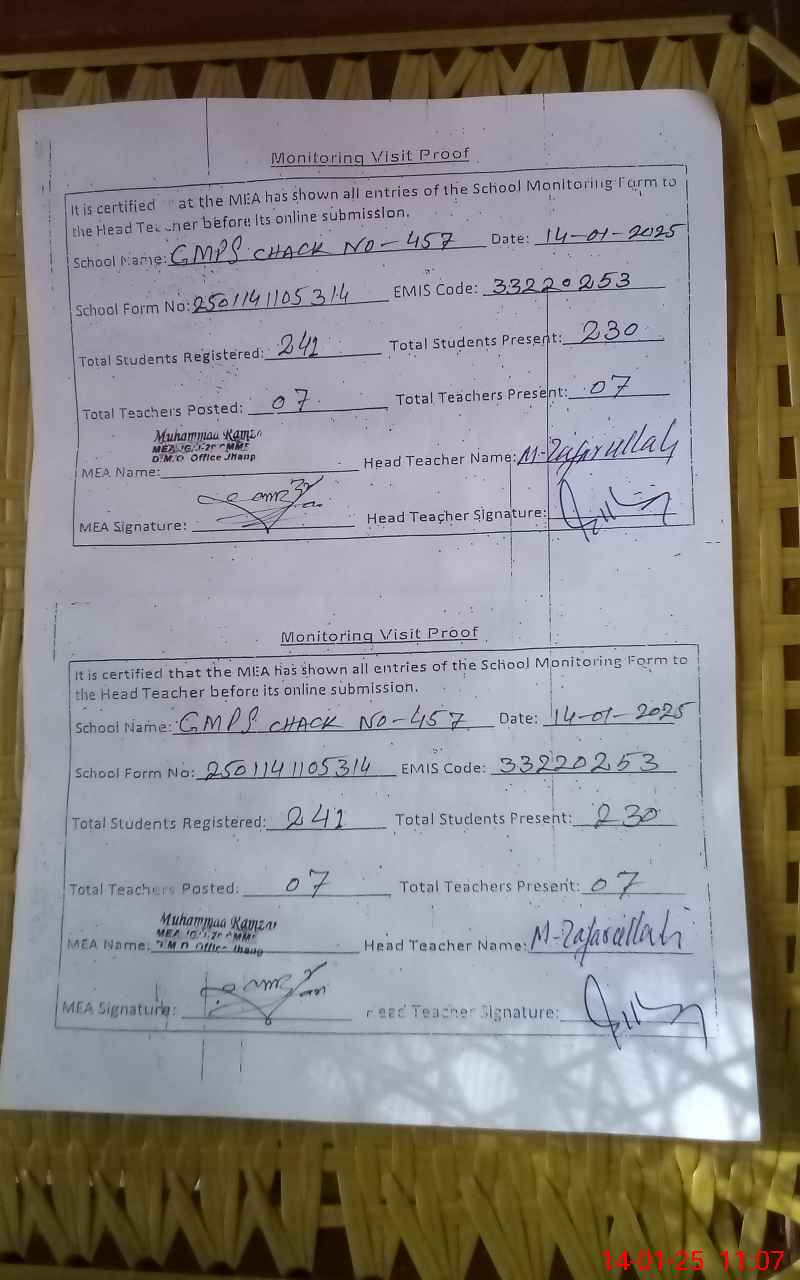 Monitoring Visit Proof
It is certified at the MEA has shown all entries of the School Monitoring Form to
the Head before its online submission.
School Name: GMPS CHACK NO-457 Date: 14-01-2025
School Form No: 2501141105314 EMIS Code: 33220253
Total Students Registered: 241 Total Students Present: 230
Total Teachers Posted: 07 Total Teachers Present: 07
Muhammad
MEA
D.M.O Office Jhang
MEA Name: Head Teacher Name: M-Zafarullah
MEA Signature: Head Teacher Signature:
Monitoring Visit Proof
It is certified that the MEA has shown all entries of the School Monitoring Form to
the Head Teacher before its online submission.
School Name: GMPS CHACK NO-457 Date: 14-01-2025
School Form No: 2501141105314 EMIS Code: 33220253
Total Students Registered: 241 Total Students Present: 230
Total Teachers Posted: 07 Total Teachers Present: 07
Muhammad
MEA
D.M.O Office Jhang
MEA Name: Head Teacher Name: M-Zafarullah
MEA Signature: Head Teacher Signature:
14-01-25 11:07